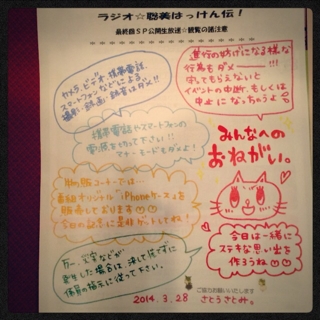 ラジオ☆聡美はっけん伝！
最終回ＳＰ公開生放送☆観覧の諸注意
カメラ、ビデオ、携帯電話、
スマートフォンなどによる
撮影・録画・録音はダメ!!
進行の妨げになる様な
行為もダメーーー!!!
守ってもらえないと
イベントの中断、もしくは
中止になっちゃうよ
携帯電話やスマートフォンの
電源を切って下さい!!
マナーモードもダメよ!
みんなへの
おねがい。
物販コーナーでは…
番組オリジナル「iPhoneケース」を
販売しております
今日の記念に是非ゲットしてね!
万一、災害などが
発生した場合は決して慌てずに
係員の指示に従って下さい。
今日は一緒に
ステキな思い出を
作ろうね
ご協力お願いいたします
2014.3.28 さとうさとみ。